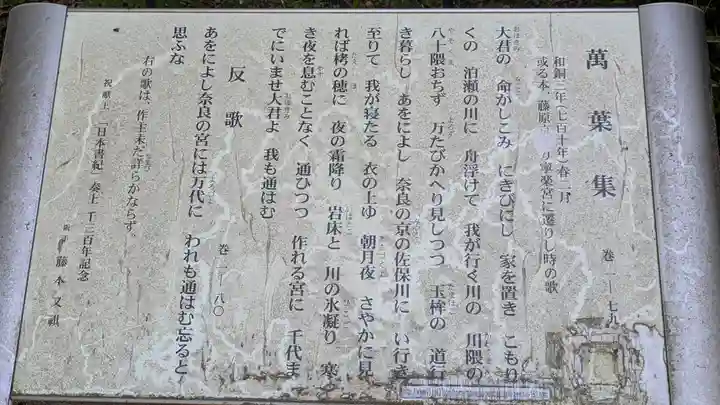 萬葉集 巻一-七九
和銅三年(七百十年)春二月
或る本、藤原 寧楽宮に遷りし時の歌
大君の 命かしこみ にきびにし 家を置き こもり
くの 泊瀬の川に 舟浮けて 我が行く川の 川隈の
八十隈おちず 万たびかへり見しつつ 玉桙の 道行
き暮らし あをによし 奈良の京の佐保川に い行き
至りて 我が寝たる 衣の上ゆ 朝月夜 さやかに見
れば栲の穂に 夜の霜降り 岩床と 川の氷凝り 寒
き夜を息むことなく 通ひつつ 作れる宮に 千代ま
でにいませ大君よ 我も通はむ
反歌 巻一-八〇
あをによし奈良の宮には万代に われも通はむ忘ると
思ふな
右の歌は、作主未だ詳らかならず。
祝 献上 「日本書紀」奏上 千三百年記念
藤本又祺